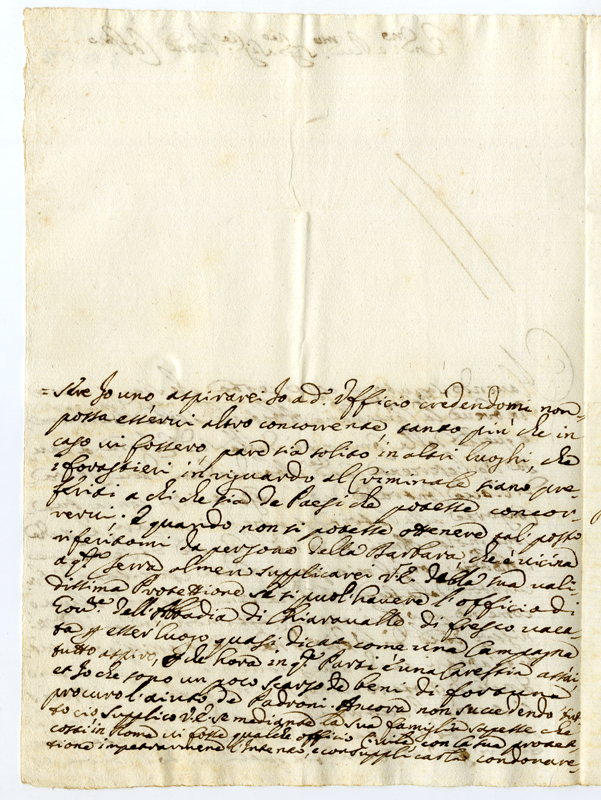 = s'ere Jo uno aspirarei Jo a d.º Ufficio credendomi non
possa esservi altro concorrente tanto più che in
caso vi fossero pare sia solito in altri luoghi, che
i forastieri in riguardo al Criminale siano pre=
feriti a chi che sia de Paesi che potesse concor=
rervi. E quando non si potesse ottenere tal posto
riferitomi da persone della Barbara, che è vicina
a q.ta Serra almen supplicarei V.E. della sua vali=
dissima Protettione se si può havere l'officio di
Gov.re dell'Abbadia di Chiaravalle di fresco vaca=
ta p esser luogo quasi dicat come una Campagna
tutto aspiro, e che hora in q.te Parti è una Carestia assai
et Jo che sono un poco scarso de beni di fortuna
procuro l'aiuto de Padroni. Ancora non succedendo
to ciò, supplico V.E. se mediante la sua famiglia sapesse che
costì in Roma vi fosse qualche offitio Civile, con la sua protet=
tione impetrarmene l'Intento, e con supplicarla condonare=